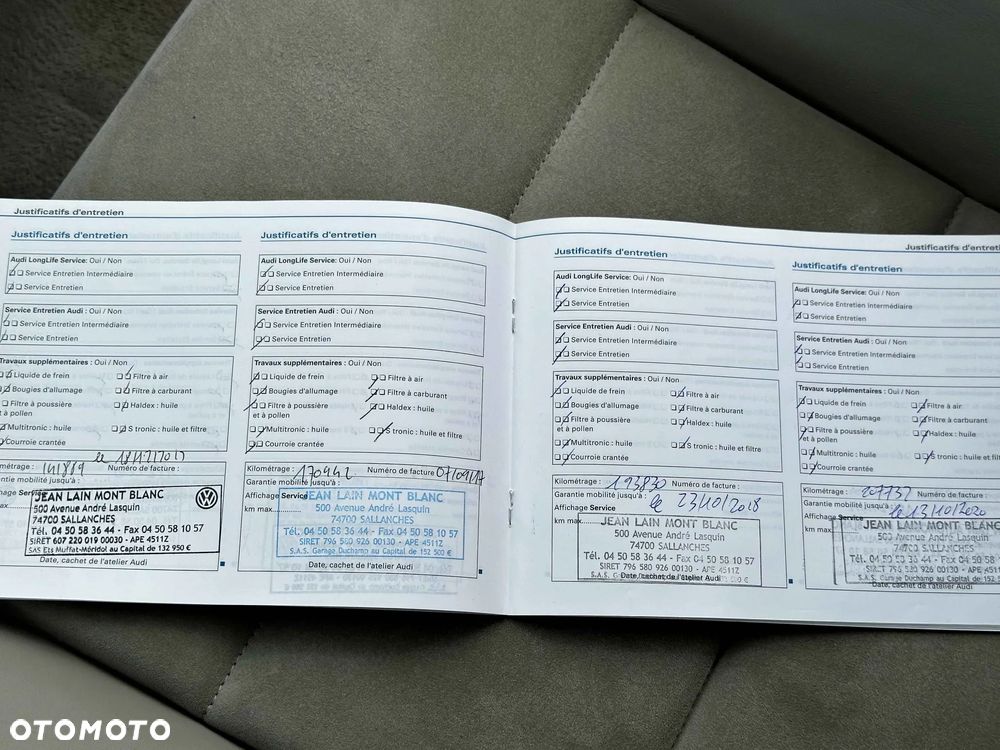 Justificatifs d'entretien
Justificatifs d'entretien
Audi LongLife Service: Oui / Non
Service Entretien Intermédiaire
Service Entretien
Service Entretien Audi : Oui / Non
Service Entretien Intermédiaire
Service Entretien
Travaux supplémentaires : Oui / Non
Liquide de frein
Filtre à air
Bougies d'allumage
Filtre à carburant
Filtre à poussière
et à pollen
Haldex : huile
Multitronic : huile
S tronic : huile et filtre
Courroie crantée
métrage : 141869 Numéro de facture :
antie mobilité jusqu'à :
hage Service
max
JEAN LAIN MONT BLANC
500 Avenue André Lasquin
74700 SALLANCHES
Tél. 04 50 58 36 44 - Fax 04 50 58 10 57
SIRET 607 220 019 00030 - APE 4511Z
SAS Ets Muffat-Méridol au Capital de 132 950 €
Date, cachet de l'atelier Audi
Justificatifs d'entretien
Audi LongLife Service: Oui / Non
Service Entretien Intermédiaire
Service Entretien
Service Entretien Audi : Oui / Non
Service Entretien Intermédiaire
Service Entretien
Travaux supplémentaires : Oui / Non
Liquide de frein
Filtre à air
Bougies d'allumage
Filtre à carburant
Filtre à poussière
et à pollen
Haldex : huile
Multitronic : huile
S tronic : huile et filtre
Courroie crantée
Kilométrage : 170442 Numéro de facture 07/09/17
Garantie mobilité jusqu'à :
Affichage Service
km max
JEAN LAIN MONT BLANC
500 Avenue André Lasquin
74700 SALLANCHES
Tél. 04 50 58 36 44 - Fax 04 50 58 10 57
SIRET 796 580 926 00130 - APE 4511Z
S.A.S. Garage Duchamp au Capital de 152 500 €
Date, cachet de l'atelier Audi
Justificatifs d'entretien
Audi LongLife Service: Oui / Non
Service Entretien Intermédiaire
Service Entretien
Service Entretien Audi : Oui / Non
Service Entretien Intermédiaire
Service Entretien
Travaux supplémentaires : Oui / Non
Liquide de frein
Filtre à air
Bougies d'allumage
Filtre à carburant
Filtre à poussière
et à pollen
Haldex : huile
Multitronic : huile
S tronic : huile et filtre
Courroie crantée
Kilométrage : 193830 Numéro de facture :
Garantie mobilité jusqu'à :
le 23/10/2018
Affichage Service
km max
JEAN LAIN MONT BLANC
500 Avenue André Lasquin
74700 SALLANCHES
Tél. 04 50 58 36 44 - Fax 04 50 58 10 57
SIRET 796 580 926 00130 - APE 4511Z
S.A.S.
Date, cachet de l'atelier Audi
Justificatifs d'entreti
Justificatifs d'entretien
Audi LongLife Service: Oui / Non
Service Entretien Intermédiaire
Service Entretien
Service Entretien Audi : Oui / Non
Service Entretien Intermédiaire
Service Entretien
Travaux supplémentaires : Oui / Non
Liquide de frein
Filtre à air
Bougies d'allumage
Filtre à carburant
Filtre à poussière
et à pollen
Haldex : huile
Multitronic : huile
S tronic : huile et filtre
Courroie crantée
Kilométrage : 207732 Numéro de facture :
Garantie mobilité jusqu'à :
le 13/10/2020
Affichage Service
km max
JEAN LAIN MONT BLANC
500 Avenue André Lasquin
74700 SALLANCHES
Tél. 04 50 58 36 44 - Fax 04 50 58
SIRET 796 580 926 00130 - APE 4511
S.A.S. Garage Duchamp au Capital de 152
Date, cachet de l'atelier Audi
OTOMOTO